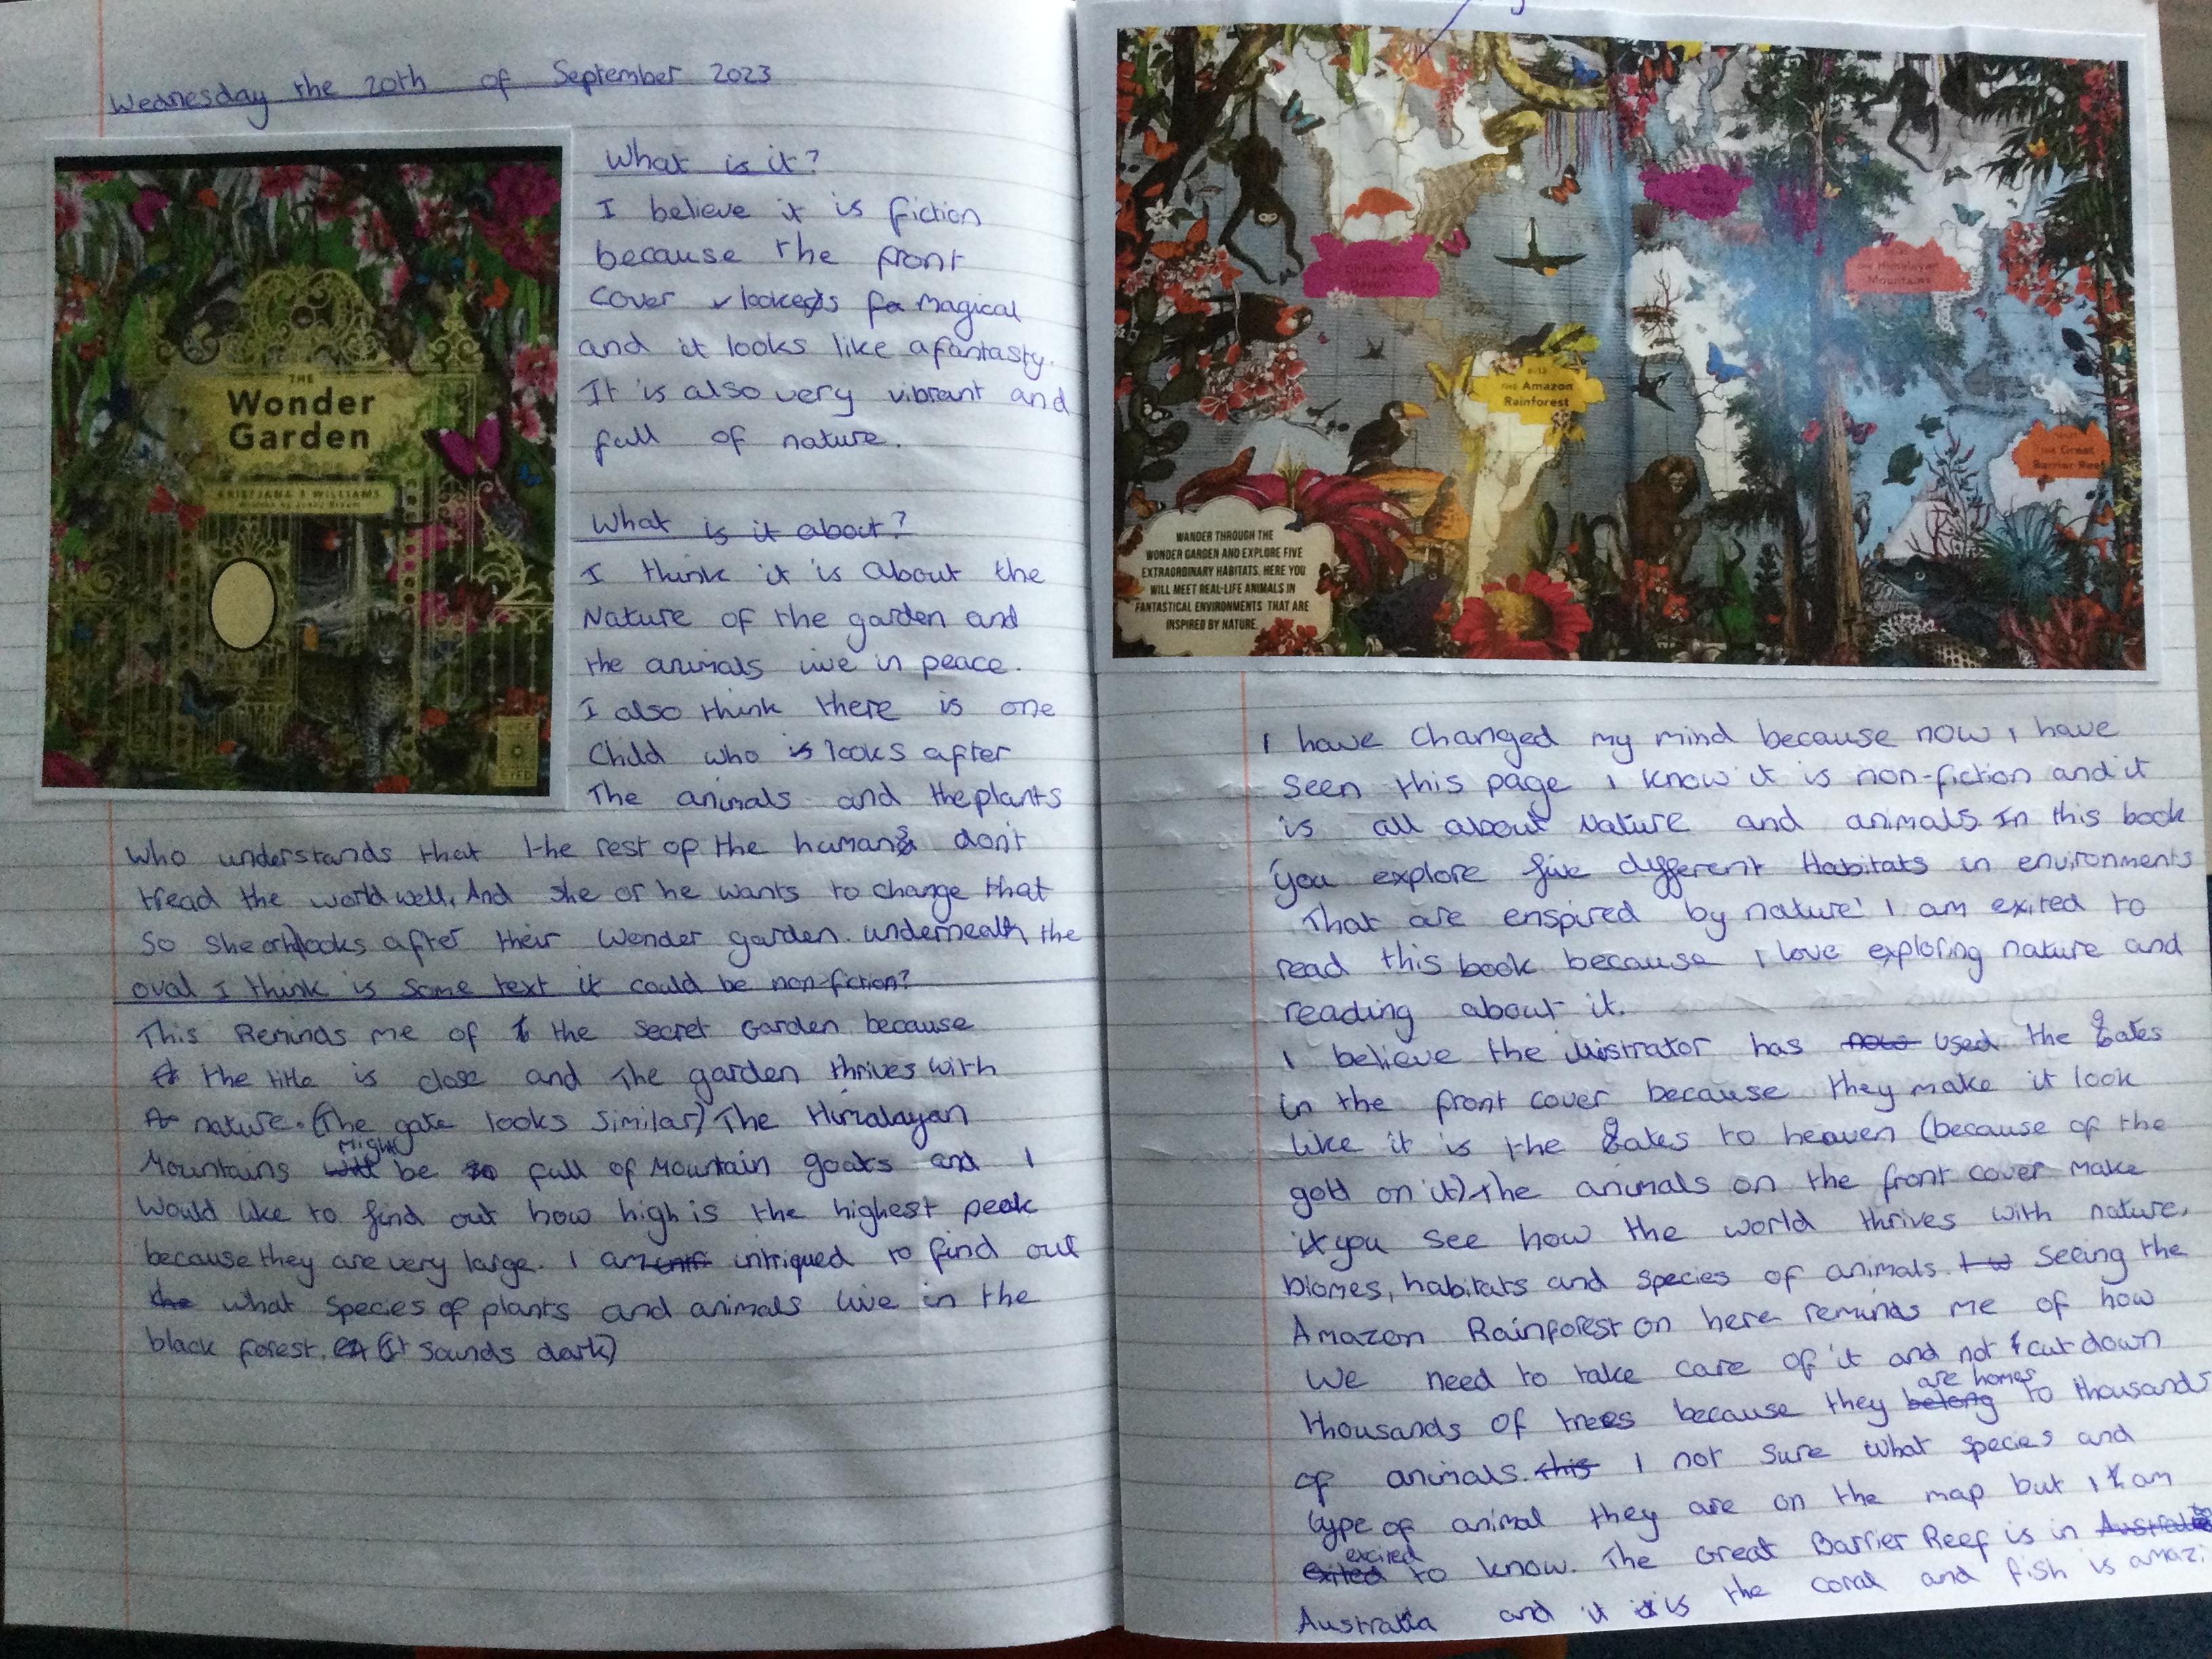 Wednesday the 20th of September 2023
THE
Wonder
Garden
KRISTJANA S WILLIAMS
Written by Jenny Broom
What is it?
I believe it is fiction
because the front
cover lookes magical
and it looks like a fantasty.
It is also very vibrant and
full of nature.
What is it about?
I think it is about the
Nature of the garden and
the animals live in peace.
I also think there is one
Child who is looks after
The animals and the plants
who understands that the rest of the humans don't
tread the world well. And she or he wants to change that
so she or he looks after their Wonder garden. underneath the
oval I think is some text it could be non-fiction?
This Reminds me of the Secret Garden because
the title is close and The garden thrives with
nature. (The gate looks similar) The Himalayan
Might
Mountains will be so full of Mountain goats and I
Would like to find out how high is the highest peak
because they are very large. I am intriqued to find out
the what species of plants and animals live in the
black forest. (It sounds dark)
The Chihuahuan
Desert
The Black
Forest
The Himalayan
Mountains
8-13
The Amazon
Rainforest
The Great
Barrier Reef
WANDER THROUGH THE
WONDER GARDEN AND EXPLORE FIVE
EXTRAORDINARY HABITATS. HERE YOU
WILL MEET REAL-LIFE ANIMALS IN
FANTASTICAL ENVIRONMENTS THAT ARE
INSPIRED BY NATURE.
I have changed my mind because now I have
seen this page I know it is non-fiction and it
is all about Nature and animals. In this book
'you explore five different Habitats in environments
That are enspired by nature' I am exited to
read this book because I love exploring nature and
reading about it.
I believe the illistrator has now used the gates
in the front cover because they make it look
like it is the gates to heaven (because of the
gold on it) The animals on the front cover make
it you see how the world thrives with nature,
biomes, habitats and species of animals. I w Seeing the
Amazon Rainforest on here reminds me of how
We need to take care of it and not cut down
are homes
thousands of trees because they belong to thousands
of animals. this I not sure what species and
type of animal they are on the map but I am
excited
exited to know. The Great Barrier Reef is in Australia
Australia and it is the coral and fish is amazi